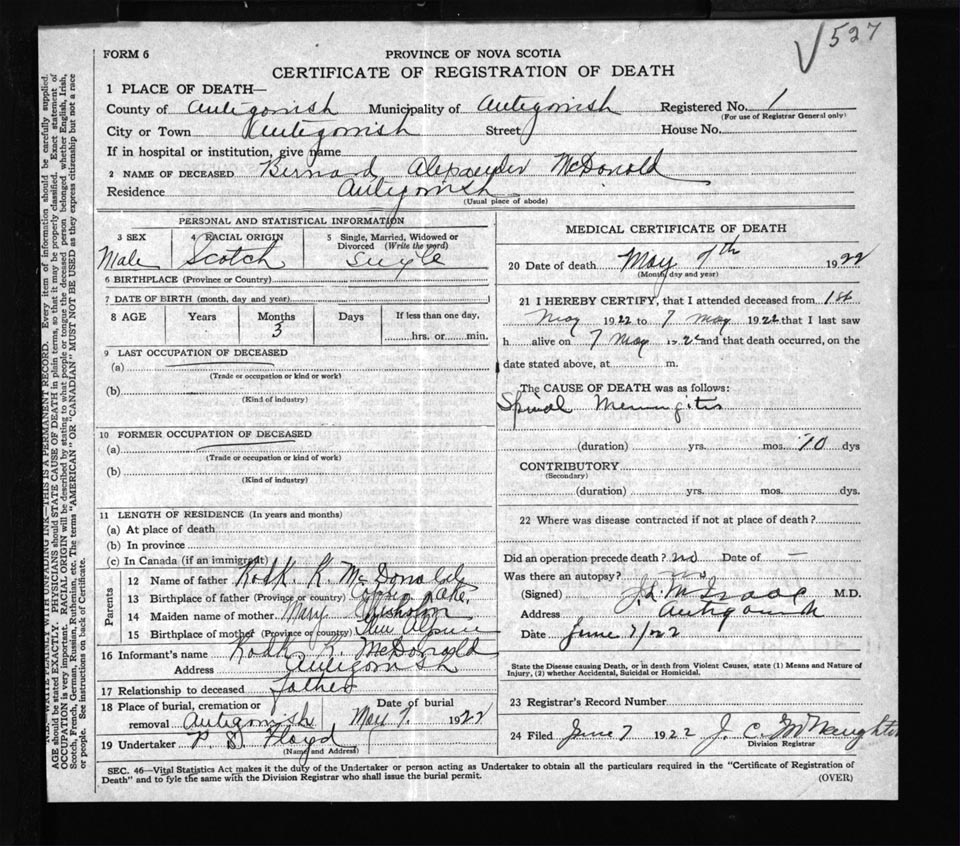 √527
FORM 6
PROVINCE OF NOVA SCOTIA
CERTIFICATE OF REGISTRATION OF DEATH
1 PLACE OF DEATH—
County of Antigonish Municipality of Antigonish Registered No. 1
(For use of Registrar General only)
City or Town Antigonish Street House No.
If in hospital or institution, give name
2 NAME OF DECEASED Bernard Alexander McDonald
Residence Antigonish
(Usual place of abode)
PERSONAL AND STATISTICAL INFORMATION
3 SEX 4 RACIAL ORIGIN 5 Single, Married, Widowed or
Divorced (Write the word)
Male Scotch Single
6 BIRTHPLACE (Province or Country)
7 DATE OF BIRTH (month, day and year)
8 AGE Years Months Days If less than one day,
3 hrs. or min.
9 LAST OCCUPATION OF DECEASED
(a)
(Trade or occupation or kind or work)
(b)
(Kind of industry)
10 FORMER OCCUPATION OF DECEASED
(a)
(Trade or occupation or kind or work)
(b)
(Kind of industry)
11 LENGTH OF RESIDENCE (In years and months)
(a) At place of death
(b) In province
(c) In Canada (if an immigrant)
Parents
12 Name of father Rodk. K. McDonald
13 Birthplace of father (Province or country) Lake,
14 Maiden name of mother Mary Chisholm
15 Birthplace of mother (Province or country)
16 Informant's name Rodk K. McDonald
Address Antigonish
17 Relationship to deceased father
18 Place of burial, cremation or Date of burial
removal Antigonish May 9. 1922
19 Undertaker P. S. Floyd
(Name and Address)
MEDICAL CERTIFICATE OF DEATH
20 Date of death May 7th 1922
(Month, day and year)
21 I HEREBY CERTIFY, that I attended deceased from 1st
May 1922 to 7 May 1922 that I last saw
h alive on 7 May 1922 and that death occurred, on the
date stated above, at m.
The CAUSE OF DEATH was as follows:
Spinal Meningitis
(duration) yrs. mos. 10 dys
CONTRIBUTORY
(Secondary)
(duration) yrs. mos. dys.
22 Where was disease contracted if not at place of death?
Did an operation precede death? no Date of —
Was there an autopsy?
(Signed) McIsaac M.D.
Address Antigonish
Date June 7/22
State the Disease causing Death, or in death from Violent Causes, state (1) Means and Nature of
Injury, (2) whether Accidental, Suicidal or Homicidal.
23 Registrar's Record Number
24 Filed June 7 1922 J. C. McNaughton
Division Registrar
SEC. 46—Vital Statistics Act makes it the duty of the Undertaker or person acting as Undertaker to obtain all the particulars required in the "Certificate of Registration of
Death" and to fyle the same with the Division Registrar who shall issue the burial permit. (OVER)
WRITE PLAINLY WITH UNFADING INK—THIS IS A PERMANENT RECORD. Every item of information should be carefully supplied.
AGE should be stated EXACTLY. PHYSICIANS should STATE CAUSE OF DEATH in plain terms, so that it may be properly classified. Exact statement of
OCCUPATION is very important. RACIAL ORIGIN will be described by stating to what people or tongue the deceased person belonged whether English, Irish,
Scotch, French, German, Russian, Ruthenian, etc. The terms "AMERICAN" OR "CANADIAN" MUST NOT BE USED as they express citizenship but not a race
or people. See instructions on back of Certificate.